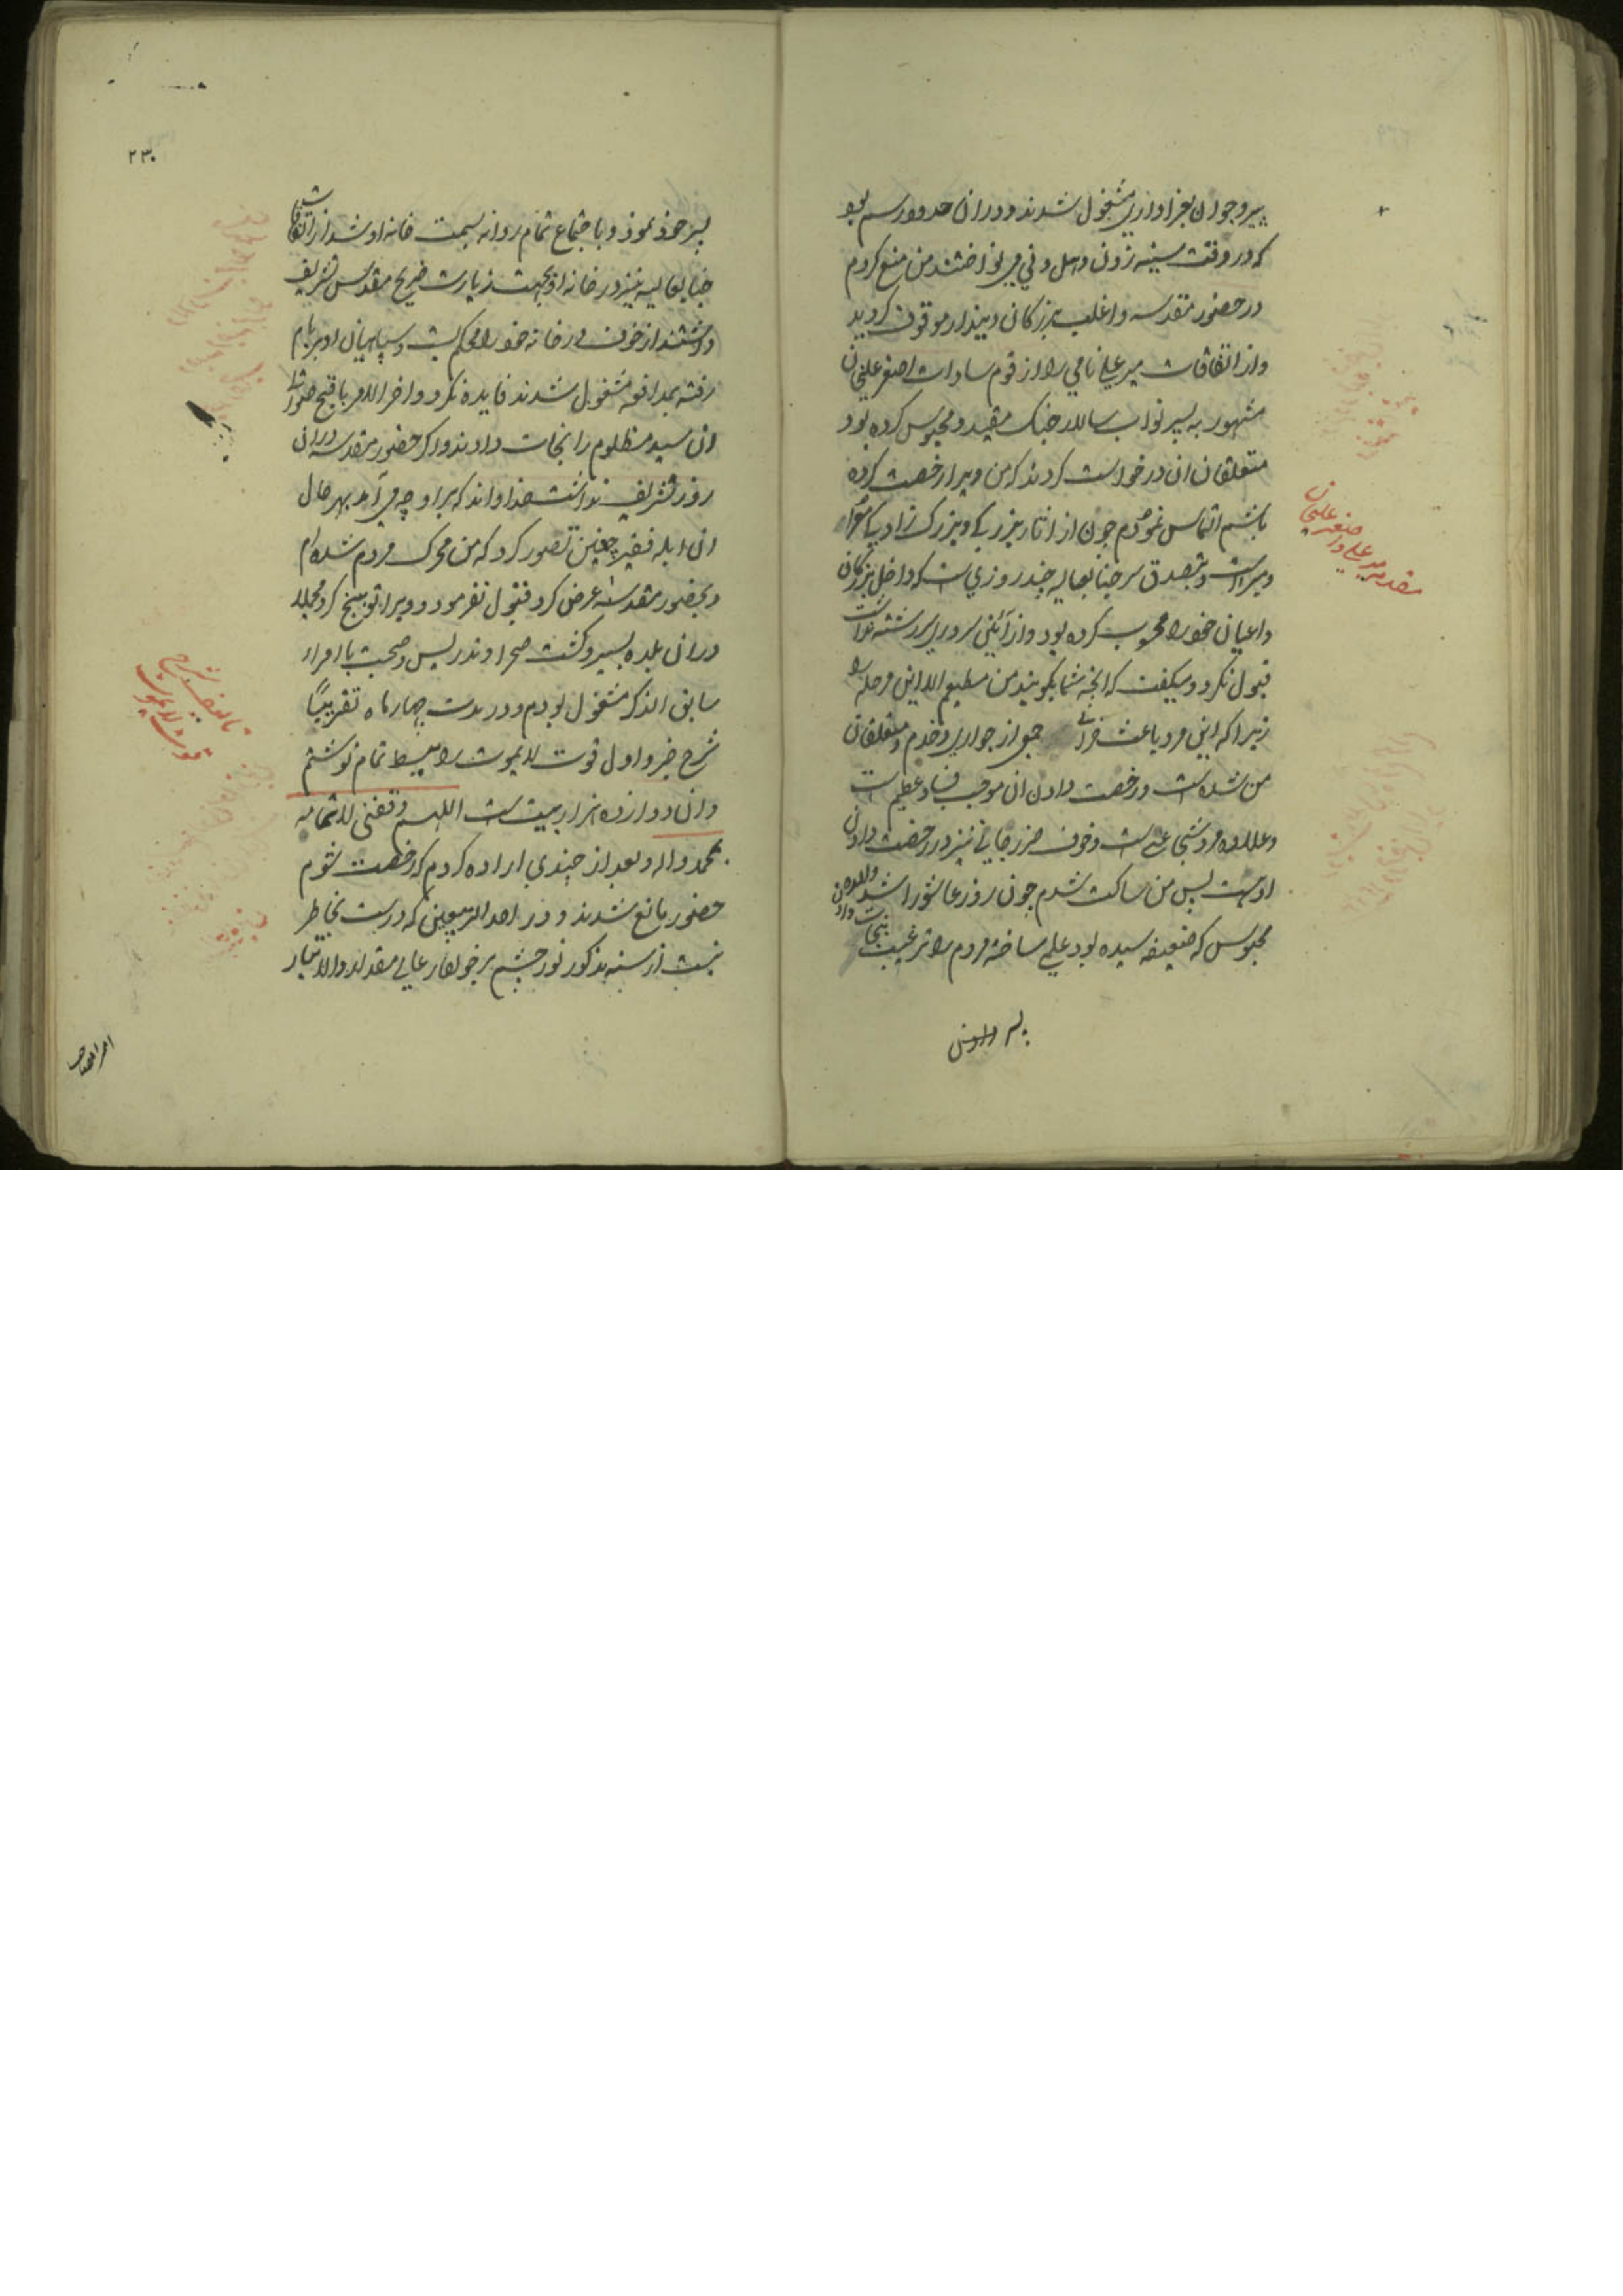 پیر و جوان بعزاداری مشغول شدند و دران حدود رسم بود
که در وقت سینه زدن دهل و نی می نواختند من منع کردم
در حضور مقدسه و اغلب بزرگان دیندار موقوف کردید
و از اتفاقات میر علی نامی را از قوم سادات اصغر علیخان
مشهور به پسر نواب سالار جنک مقید و محبوس کرده بود
متعلقان ان درخواست کردند که من ویرا رخصت کرده
باشم التماس نمودم چون از اثار بزرکی و بزرک زادکی
و میراست و بتصدق سر جنابعالیه چند روزی است که داخل بزرکان
و اعیان خود را محسوب کرده بود و از آئین سروری سررشته نداشت
قبول نکرد و میکفت که انچه شما بکویید من مطیعم الا این مرحله را
زیرا که این مرد باعث جمعی از جواری و خدم و متعلقان
من شده است و رخصت دادن ان موجب فساد عظیم است
و علاوه مرد شجاعی است و خوف ضرر جانی نیز در رخصت دادن
اوست پس من ساکت شدم چون روز عاشورا شد والده ان
محبوس که ضعیفه سیده بود علمی ساخته مردم را ترغیب بنجات دادن
پسر دادن
مقدمه میر علی و اصغر علیخان
۲۳۰
پسر خود نمود و باجتماع تمام روانه بسمت خانه او شد از اتفاقات
جنابعالیه نیز در خانه او بجهت زیارت ضریح مقدس تشریف
داشتند از خوف در خانه خود را محکم بست و سپاهیان او ببام
رفته بمدافعه مشغول شدند فایده نکرد و اخر الامر باقبح صورتی
ان سید مظلوم را نجات دادند و اکر حضور مقدسه دران
روز تشریف نداشت خدا داند که بر او چه می آمد بهر حال
ان ابله فقیر چنین تصور کرد که من محرک مردم شده ام
و بحضور مقدسه عرض کرد قبول نفرمود و ویرا توبیخ کرد مجملا
دران بلده بسیر و کشت صحرا و تدریس و صحبت با امراء
سابق الذکر مشغول بودم و در مدت چهار ماه تقریبًا
شرح جزو اول قوت لا یموت را بسیط تمام نوشتم
و ان دوازده هزار بیت است اللهم وفقنی لاتمامه
بمحمد و اله و بعد از چندی اراده کردم که رخصت شوم
حضور مانع شدند و در احد الربیعین که درست بخاطر
نیست از سنه مذکور نور چشم برخوردار عالی مقدار والاتبار
تالیف شرح
قوت لا یموت